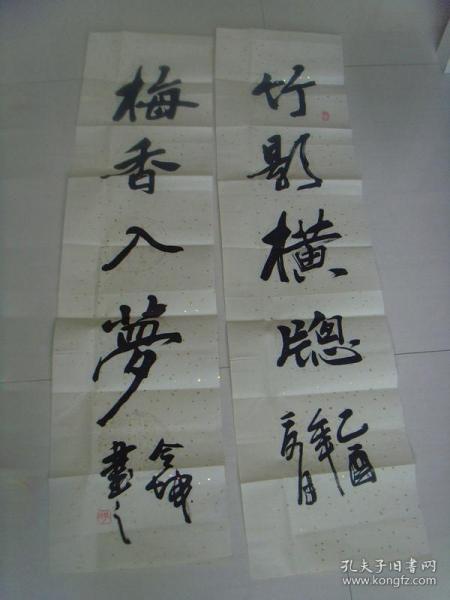 竹影橫牕
乙酉
年
月
梅香入夢
坤
書之
孔夫子旧书网
www.kongfz.com